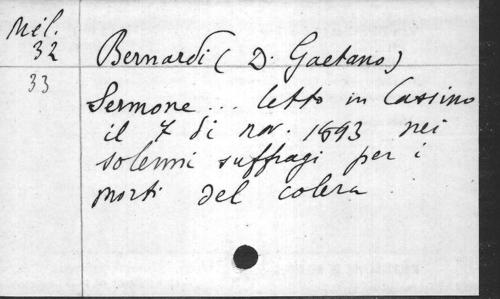 Mél.
32
Bernardi (D. Gaetano)
33
Sermone... letto in Cassino
il 7 di nov. 1893 nei
solenni suffragi per i
morti del colera